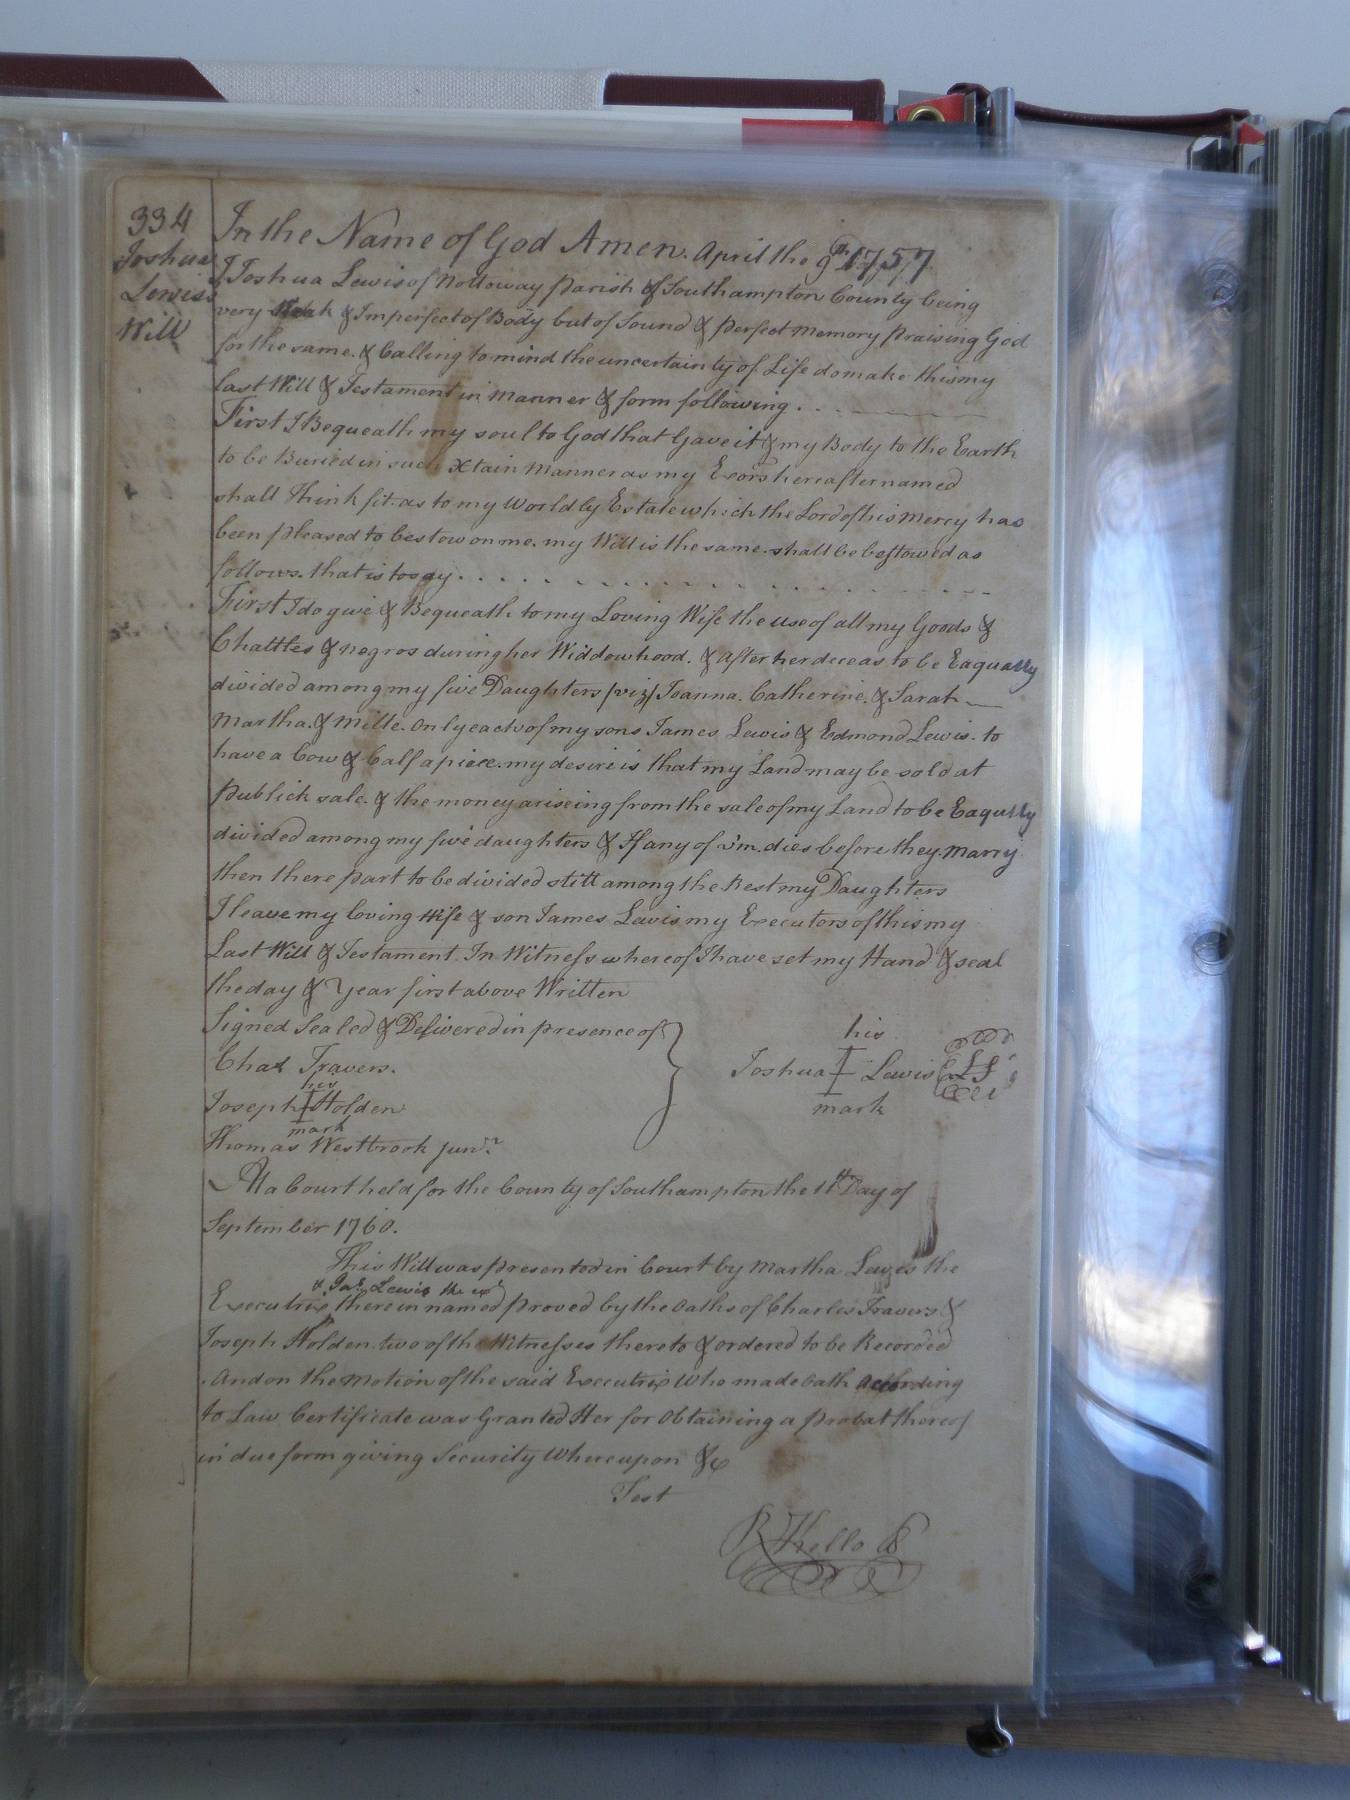 334
Joshua
Lewis's
Will
In the Name of God Amen. April the 9th 1757
I Joshua Lewis of Nottoway parish of Southampton County being
very Weak & Imperfect of Body but of Sound & perfect Memory praising God
for the same. & Calling to mind the uncertainty of Life do make this my
Last Will & Testament in manner & form following . . .
First I Bequeath my soul to God that Gave it & my Body to the Earth
to be Buried in such Xtain Manner as my Exors hereafter named
shall think fit. as to my Worldly Estate which the Lord of his Mercy has
been pleased to bestow on me. my Will is the same. shall be bestowed as
follows. that is to say. . . . . . . . . . . . . . . . . . .
First I do give & Bequeath to my Loving Wife the use of all my Goods &
Chattles & negros during her Widdowhood. & after her deceas to be Eaqually
divided among my five Daughters /viz/ Joanna. Catherine. & Sarah
Martha. & Mille. only each of my sons James Lewis & Edmond Lewis. to
have a Cow & Calf apiece. my desire is that my Land may be sold at
publick sale. & the money ariseing from the sale of my Land to be Eaqully
divided among my five daughters & If any of 'm. dies before they. Marry
then there part to be divided still among the Rest my Daughters
I leave my loving Wife & son James Lewis my Executors of this my
Last Will & Testament. In Witness whereof I have set my Hand & seal
the day & Year first above Written
Signed Sealed & Delivered in presence of
his
Chas Travers.
Joshua I Lewis LS
his
Joseph I Holden
mark
mark
Thomas Westbrook junr.
At a Court held for the County of Southampton the 11th Day of
September 1760.
This Will was presented in Court by Martha Lewis the
& Jas. Lewis the
Executrix therein named proved by the oaths of Charles Travers &
Joseph Holden two of the Witnesses thereto & ordered to be Recorded
And on the Motion of the said Executrix Who made oath according
to Law Certificate was Granted Her for Obtaining a probat thereof
in due form giving Security Whereupon &c
Test
R Kello